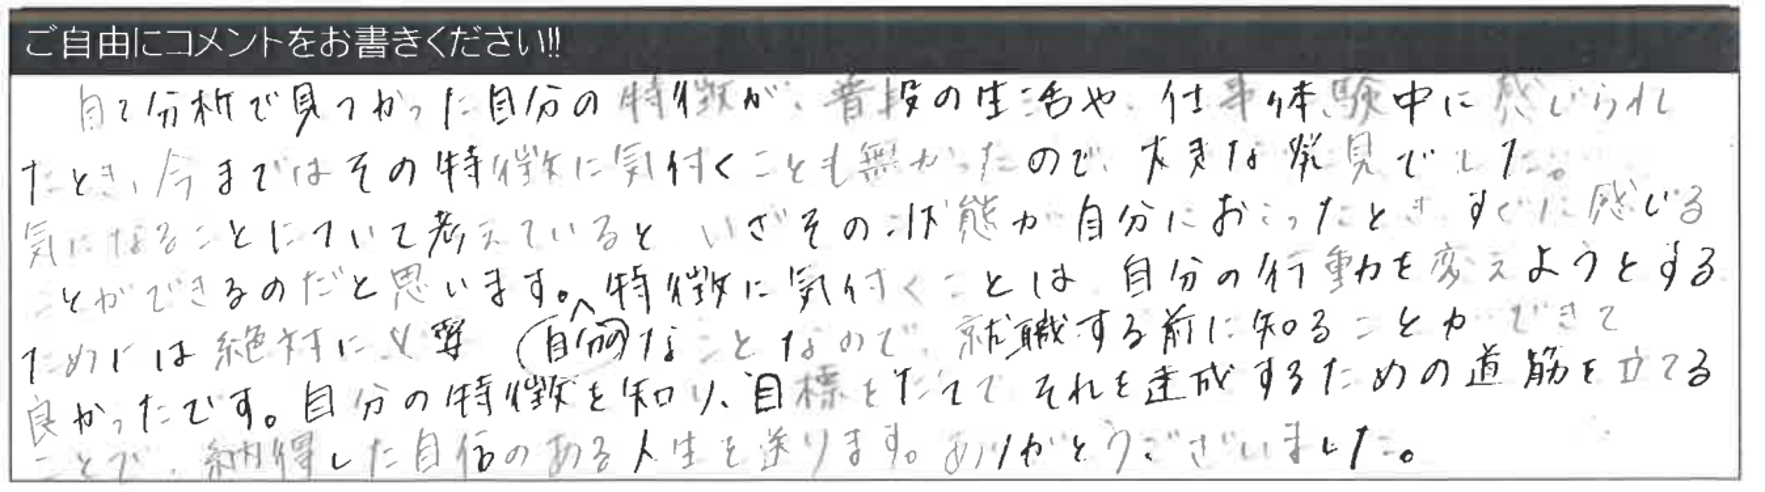 ご自由にコメントをお書きください!!
自己分析で見つかった自分の特徴が、普段の生活や、仕事体験中に感じられ
たとき、今まではその特徴に気付くことも無かったので、大きな発見でした。
気になることについて考えていると、いざその状態が自分におこったとき、すぐに感じる
ことができるのだと思います。特徴に気付くことは、自分の行動を変えようとする
ためには絶対に必要なことなので、就職する前に知ることができて
自分の
良かったです。自分の特徴を知り、目標をたててそれを達成するための道筋を立てる
ことで、納得した自信のある人生を送ります。ありがとうございました。